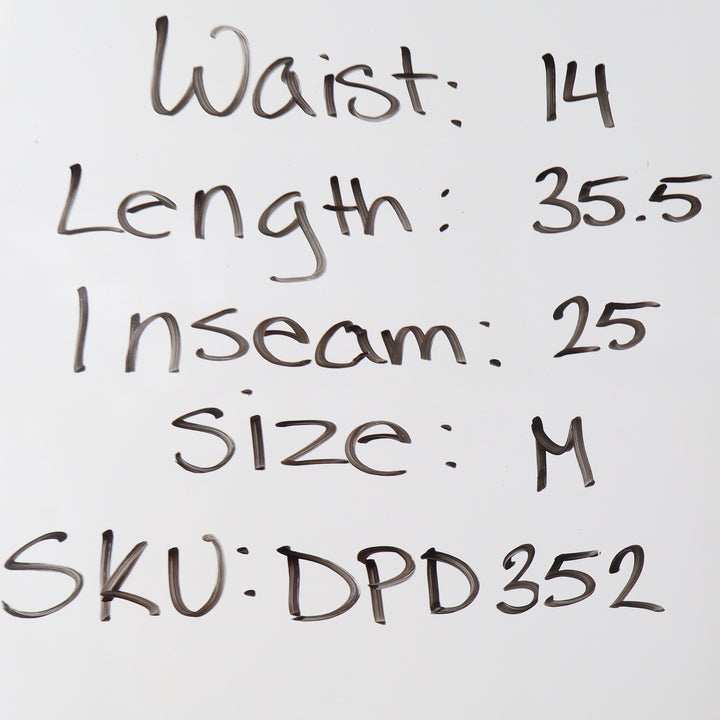 Waist: 14
Length: 35.5
Inseam: 25
Size: M
SKU: DPD352